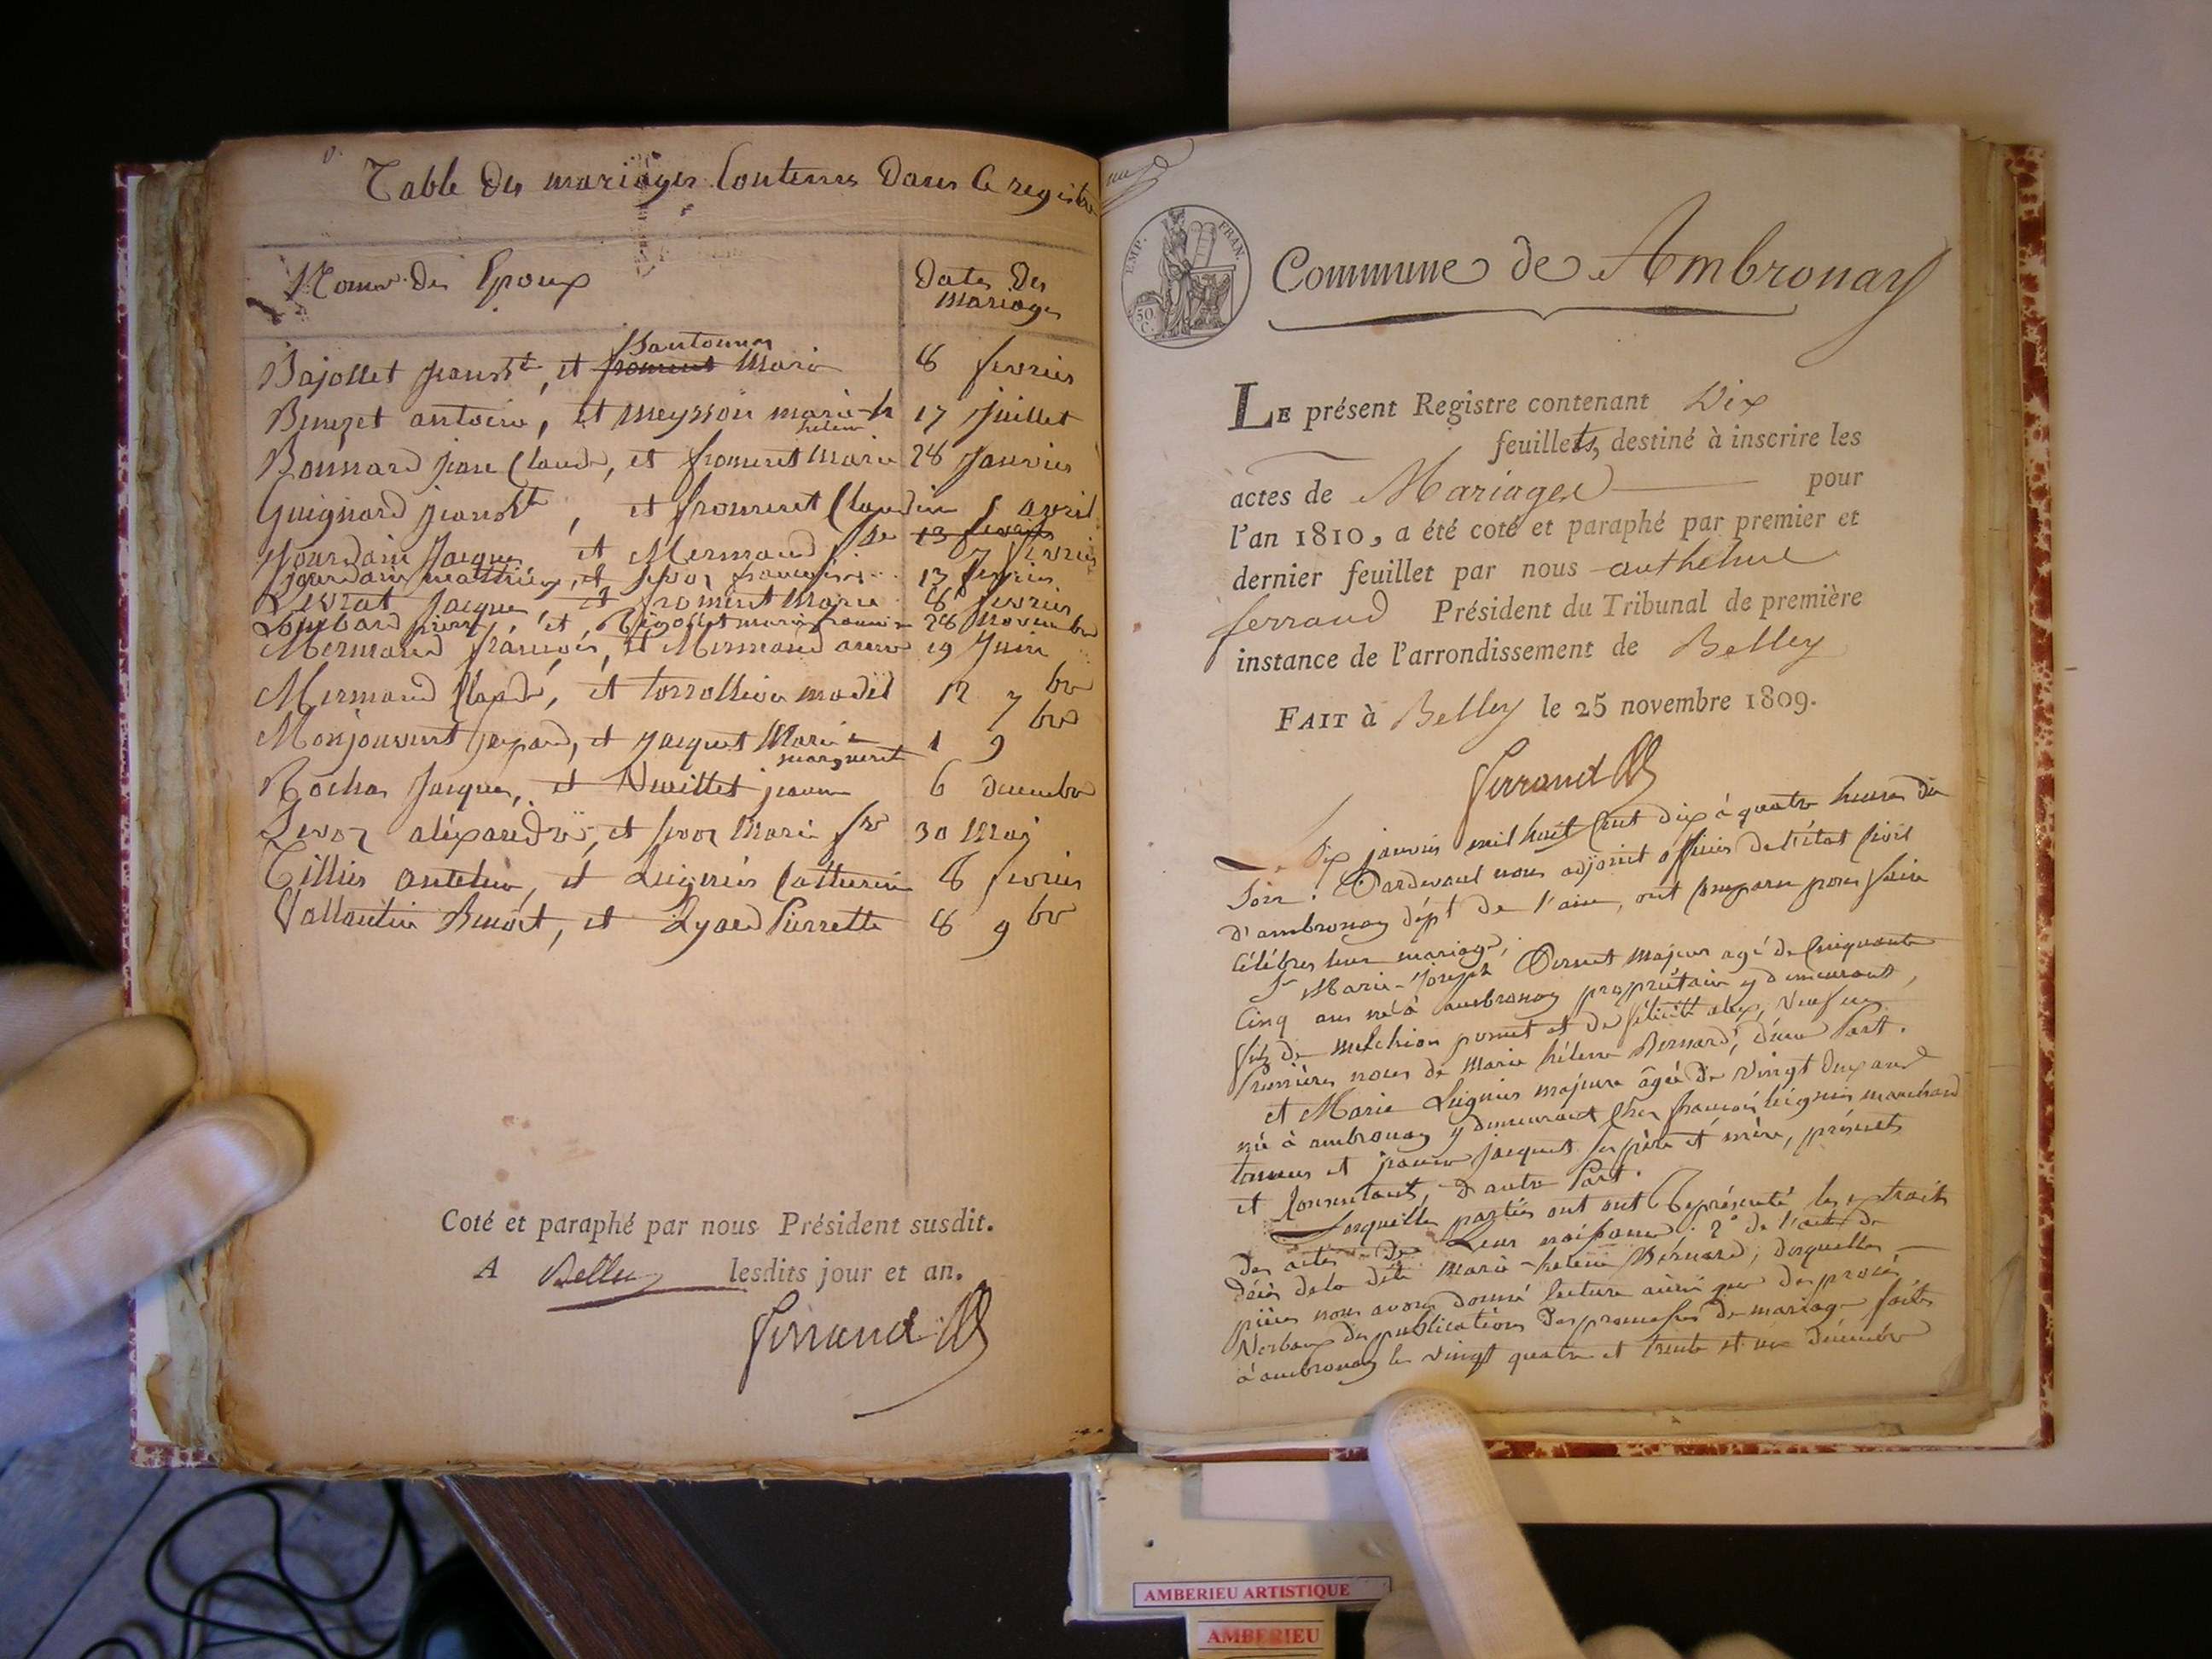 Table des mariages Contenus dans le registre
Noms des Epoux
Dates des
mariages
Pantonnier
Bajollet jean Bte, et froment Marie 8 fevrier
Benezet antoine, et meysson marie-h 17 Juillet
helene
Bonnard jean Claude, et froment Marie 28 Janvier
Guignard jean Bte, et froment Claudine avril
Jourdain Jacques et Mermand 13 fevrier
7 fevrier
Jourdain matthieu, et francoise 13 fevrier
Levrat Jacques, et froment Marie 8 fevrier
Lombard pierre, et Rigollet marie 28 Novembre
Mermand françois, et Mermand anne 19 Juin
Mermand Claude, et 12 7 bre
Monjouvent, et Jacquet Marie 1 9 bre
marguerit
Rochas Jacques, et Neuillet jeanne 6 decembre
alexandre, et Marie 30 Mai
Tillier antelme, et Luignier Catherine 8 fevrier
Vallantin Benoit, et Lyard Pierrette 8 9 bre
Coté et paraphé par nous Président susdit.
A Belley lesdits jour et an.
Ferrand
EMP. FRAN.
50 C.
Commune de Ambronay
LE présent Registre contenant Dix
feuillets, destiné à inscrire les
actes de Mariages pour
l'an 1810, a été coté et paraphé par premier et
dernier feuillet par nous anthelme
ferrand Président du Tribunal de première
instance de l'arrondissement de Belley
FAIT à Belley le 25 novembre 1809.
Ferrand
Le Dix janvier mil huit Cent dix à quatre heures du
Soir. Pardevant nous adjoint officier de l'état Civil
d'ambronay dépt de l'ain, ont comparu pour faire
Célébrer leur mariage;
Sr Marie-Joseph Pernet majeur agé de Cinquante
Cinq ans né à ambronay propriétaire y demeurant,
fils de melchior et de félicité, Veuf en
Premières noces de Marie hélene Bernard, d'une Part.
et Marie Luignier majeure âgée de Vingt deux ans
née à ambronay y demeurant Chez françois luignier marchand
tanneur et jeanne jacquet ses père et mère, présents
et Consentants, d'autre Part.
Lesquelles parties ont Représenté les extraits
des actes de Leur naissance: 2° de l'acte de
décès de la dite Marie-helene Bernard; desquelles
pièces nous avons donné lecture ainsi que des procès
Verbaux des publications des promesses de mariage faites
à ambronay les vingt quatre et trente et un décembre
AMBERIEU ARTISTIQUE
AMBERIEU